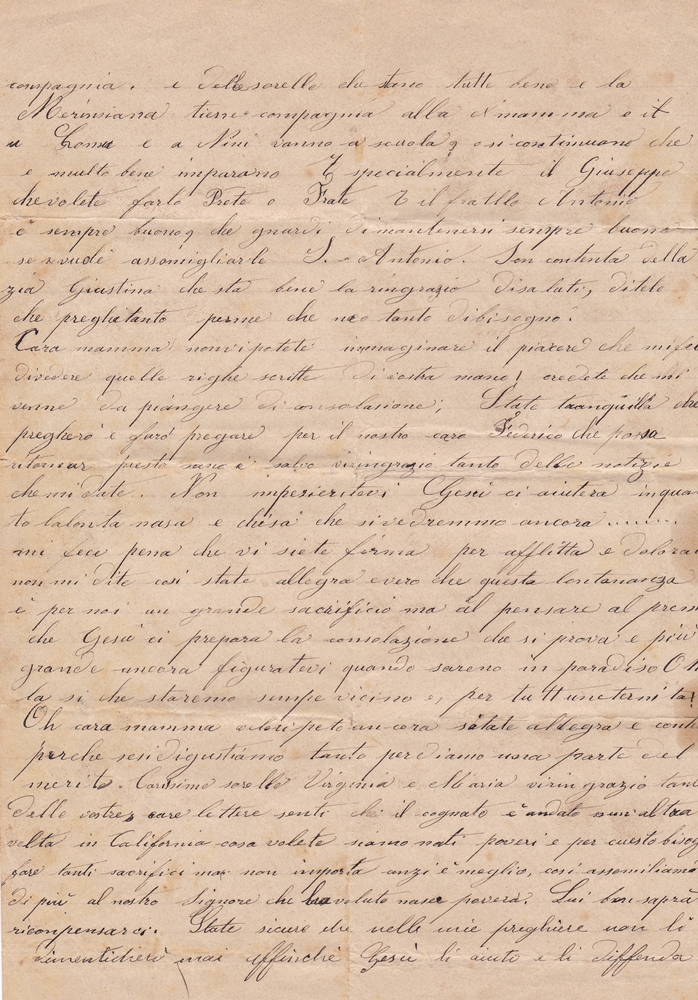 compagnia. e delle sorelle che stano tutte bene e la
tiene compagnia alla mamma e il
e a Nini vanno a scuola e si continuano che
e multo bene imparano E specialmente il Giuseppe
che volete farlo Prete o Frate E il fratllo Antonio
è sempre buono, che guardi di mantenersi sempre buono
se vuole assomigliarle S. Antonio. Son contenta della
zia Giustina che sta bene la ringrazio di saluti, ditele
che preghi tanto perme che neo tanto dibisogno.
Cara mamma nonvi potete immaginare il piacere che mi fu
divedere quelle righe scritte di vostra mano! credete che mi
venne da piangere di consolasione, State tranquilla che
pregherò e farò pregare per il nostro caro Federico che possa
ritornar presto sano e salvo viringrazio tanto delle notizie
che mi date. Non Gesù ci aiuterà inqua
to lalonta nasa e chisà che sivedremmo ancora ........
mi fece pena che vi siete firma per afflitta e dolora
non mi dite così state allegra e vero che questa lontananza
è per noi un grande sacrificio ma al pensare al prem
che Gesù ci prepara la consolazione che si prova e più
grande ancora figuratevi quando sareno in paradiso Oh
la si che staremo sempe vicino e, per tutt uneternita!
Oh cara mamma veloripeto ancora state allegra e cont
perche sesidigustiamo tanto perdiamo una parte del
merito. Carissime sorelle Virginia e Maria viringrazio tan
delle vostre, care lettere senti che il cognato è andato a un'altra
volta in California cosa volete siamo nati poveri e per questo bisog
fare tanti sacrifici ma non importa anzi è meglio, così assomiliamo
di più al nostro Signore che ha voluto nase povero. Lui ben saprà
ricompensarci. State sicure che nelle mie preghiere non li
dimenticherò mai affinchè Gesù li aiuto e li diffenda